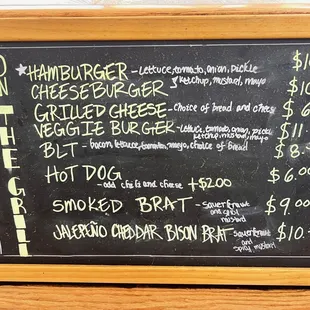 ON THE GRILL
HAMBURGER - lettuce, tomato, onion, pickle $1
ketchup, mustard, mayo
CHEESEBURGER $10
GRILLED CHEESE - choice of bread and cheese $6
VEGGIE BURGER - Lettuce, tomato, onion, pickle $11.
ketchup, mustard, mayo
BLT - bacon, lettuce, tomato, mayo, choice of Bread $8.
HOT DOG $6.00
- add chili and cheese +$2.00
SMOKED BRAT - sauerkraut and grld mustard $9.00
JALEPEÑO CHEDDAR BISON BRAT sauerkraut and spicy mustard $10.